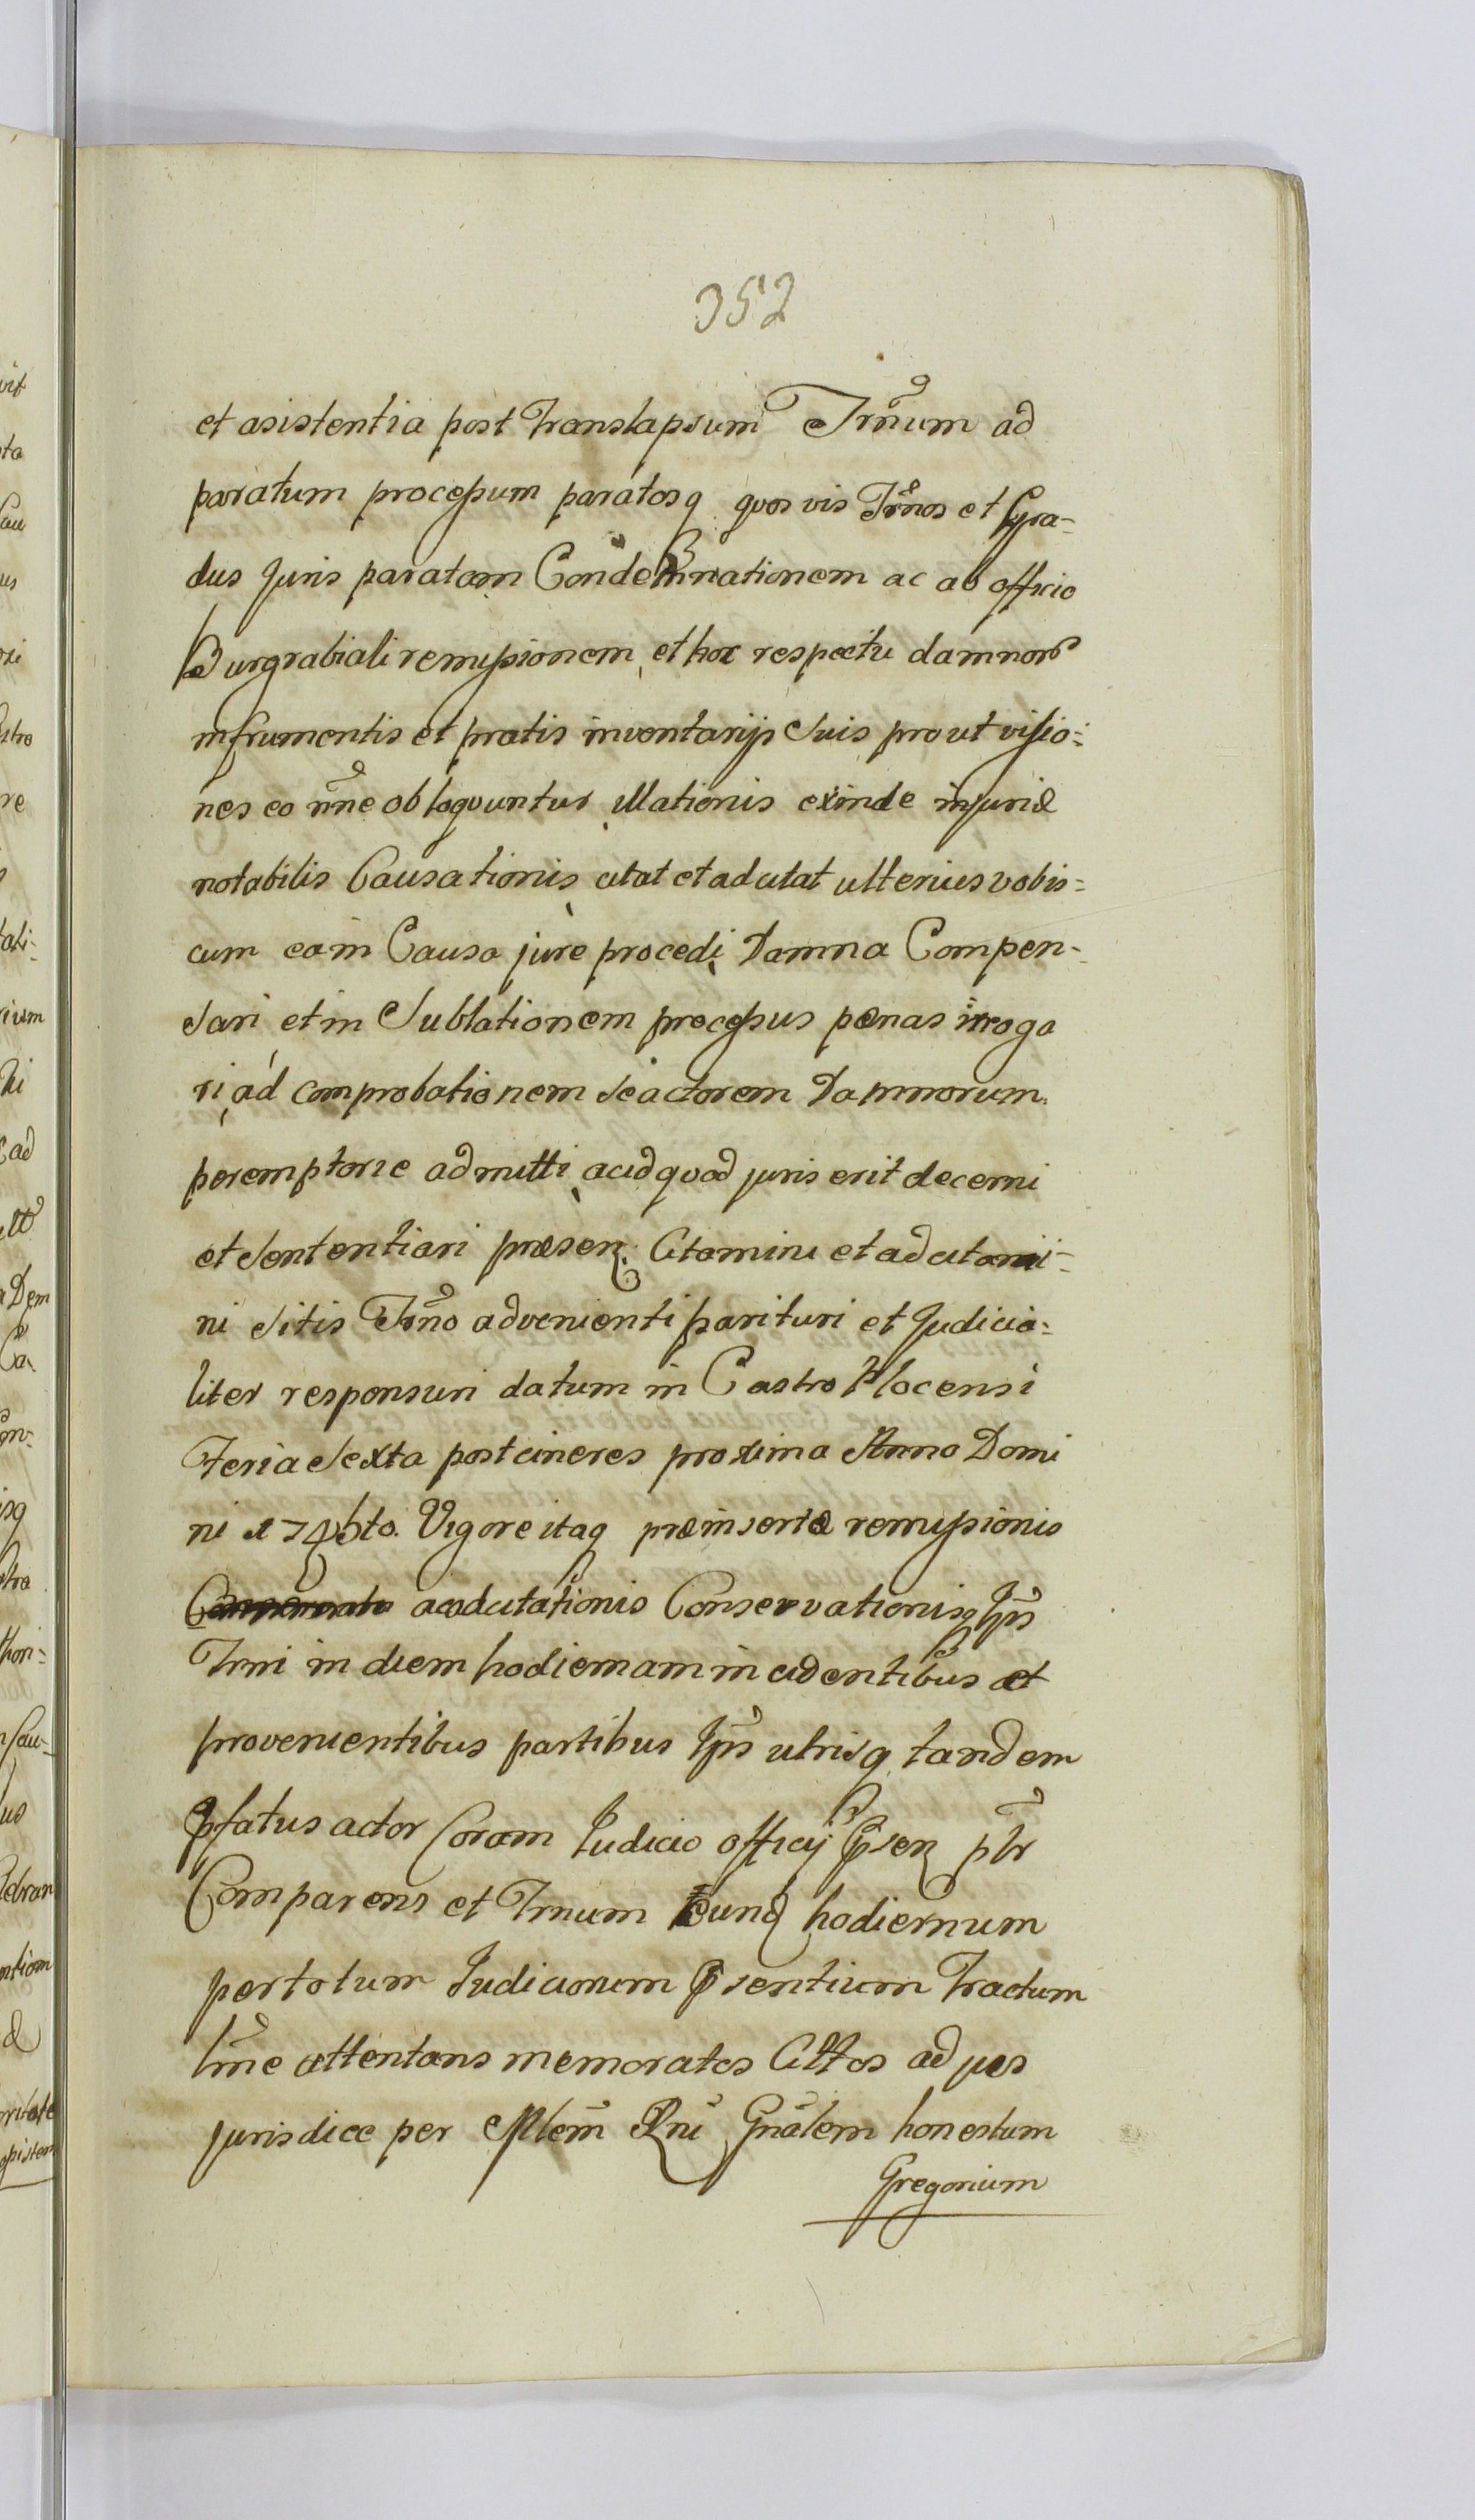 352
et asistentia post translapsum Trn̄um ad
paratum processum paratosq quos vis Trn̄os et Gra-
dus Juris paratam Condemnationem ac ab officio
Burgrabiali remissionem, et hoc respectu damnorȝ
in frumentis et pratis inventarijs Suis prout visio=
nes eo nn̄e obloquuntur illationis exinde injuriæ
notabilis Causationis, citat et adcitat ulterius vobis=
cum eain Causa jure procedi, Damna Compen-
sari et in Sublationem processus pœnas irroga
ri, ad comprobationem se actorem Damnorum
peremptorie admitti, acid quod juris erit decerni
et Sententiari præsen. Citamini et adcitami-
ni Sitis Trn̄o advenienti parituri et Judicia=
liter responsuri datum in Castro Plocensi
Feria Sexta post cineres proxima Anno Domi
ni 1745to. Vigore itaq præinsertæ remissionis
acadcitationis Conservationisq Ipn̄s
Trni in diem hodiernam incidentibus et
provenientibus partibus Ipn̄s utrisq tandem
Pfatus actor Coram Judicio officij Psen pltr
Comparens et Trnum eund hodiernum
per totum Judiciorum Psentium Tractum
ln̄e attentans memoratos Cittos ad jus
jurisdice per Mlem̄ Rn̄i Gn̄alem honestum
Gregorium